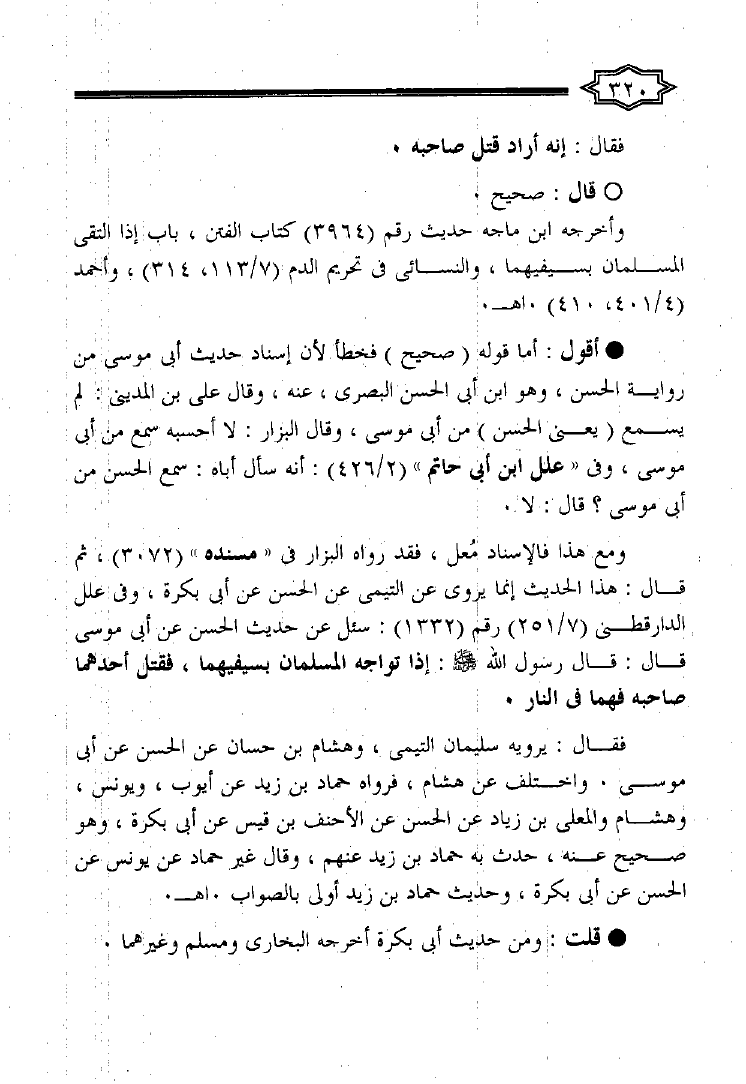 ٣٢٠
فقال : إنه أراد قتل صاحبه .
○ قال : صحيح .
وأخرجه ابن ماجه حديث رقم (٣٩٦٤) كتاب الفتن ، باب إذا التقى
المسلمان بسيفيهما ، والنسائى فى تحريم الدم (١١٣/٧، ٣١٤) ، وأحمد
(٤٠١/٤، ٤١٠) .اهـ.
● أقول : أما قوله ( صحيح ) فخطأ لأن إسناد حديث أبى موسى من
رواية الحسن ، وهو ابن أبى الحسن البصرى ، عنه ، وقال على بن المدينى : لم
يسمع ( يعنى الحسن ) من أبى موسى ، وقال البزار : لا أحسبه سمع من أبى
موسى ، وفى « علل ابن أبى حاتم » (٤٢٦/٢) : أنه سأل أباه : سمع الحسن من
أبى موسى ؟ قال : لا .
ومع هذا فالإسناد مُعل ، فقد رواه البزار فى « مسنده » (٣٠٧٢) ، ثم
قال : هذا الحديث إنما يروى عن التيمى عن الحسن عن أبى بكرة ، وفى علل
الدارقطنى (٢٥١/٧) رقم (١٣٣٢) : سئل عن حديث الحسن عن أبى موسى
قال : قال رسول الله ﷺ : إذا تواجه المسلمان بسيفيهما ، فقتل أحدهما
صاحبه فهما فى النار .
فقال : يرويه سليمان التيمى ، وهشام بن حسان عن الحسن عن أبى
موسى . واختلف عن هشام ، فرواه حماد بن زيد عن أيوب ، ويونس ،
وهشام والمعلى بن زياد عن الحسن عن الأحنف بن قيس عن أبى بكرة ، وهو
صحيح عنه ، حدث به حماد بن زيد عنهم ، وقال غير حماد عن يونس عن
الحسن عن أبى بكرة ، وحديث حماد بن زيد أولى بالصواب .اهـ.
● قلت : ومن حديث أبى بكرة أخرجه البخارى ومسلم وغيرهما .